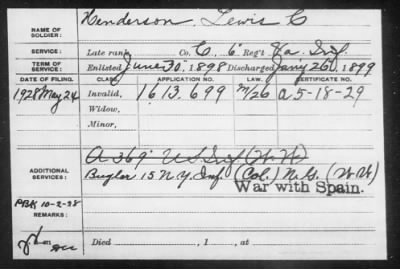 NAME OF SOLDIER: Henderson, Lewis C
SERVICE: Late rank, Co. C, 6" Reg't Va. Inf.
TERM OF SERVICE: Enlisted June 30", 1898 Discharged Jan'y 26", 1899
DATE OF FILING. CLASS. APPLICATION NO. LAW. CERTIFICATE NO.
1928 May 24 Invalid, 1613.699 M/26 a 5-18-29
Widow,
Minor,
A 369" US Inf (W.W)
ADDITIONAL SERVICES: Bugler 15 N.Y. Inf (Col.) N.G. (W.W)
War with Spain.
PBK 10-2-28
REMARKS:
Died , 1 , at